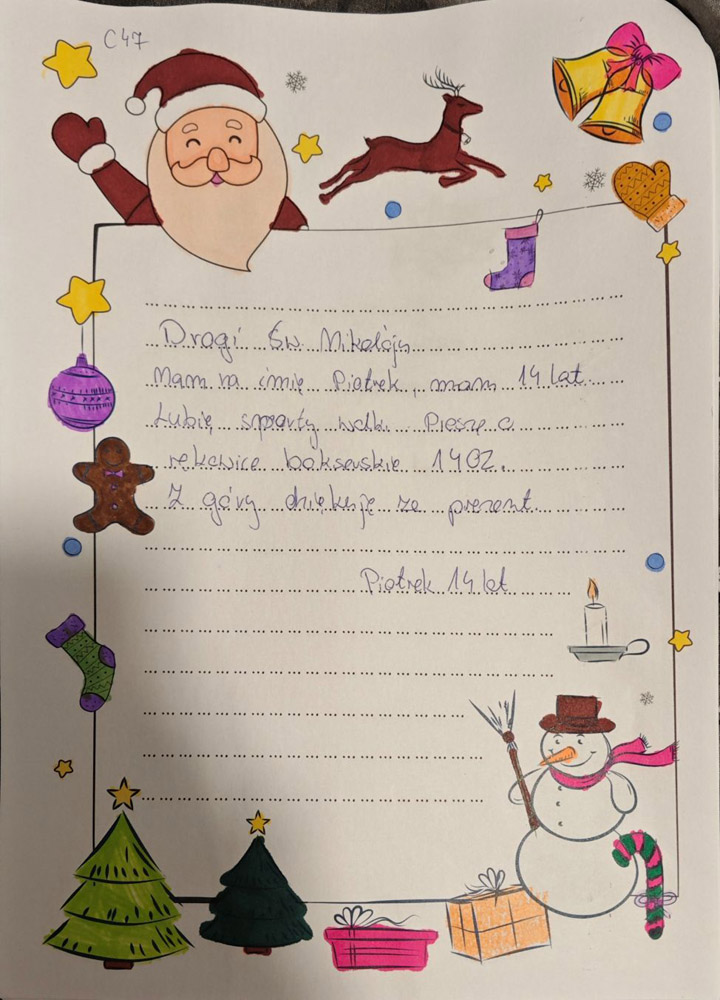 C47
Drogi Św. Mikołaju
Mam na imię Piotrek, mam 14 lat.
Lubię sporty walki. Proszę o
rękawice bokserskie 14 OZ.
Z góry dziękuję za prezent.
Piotrek 14 lat